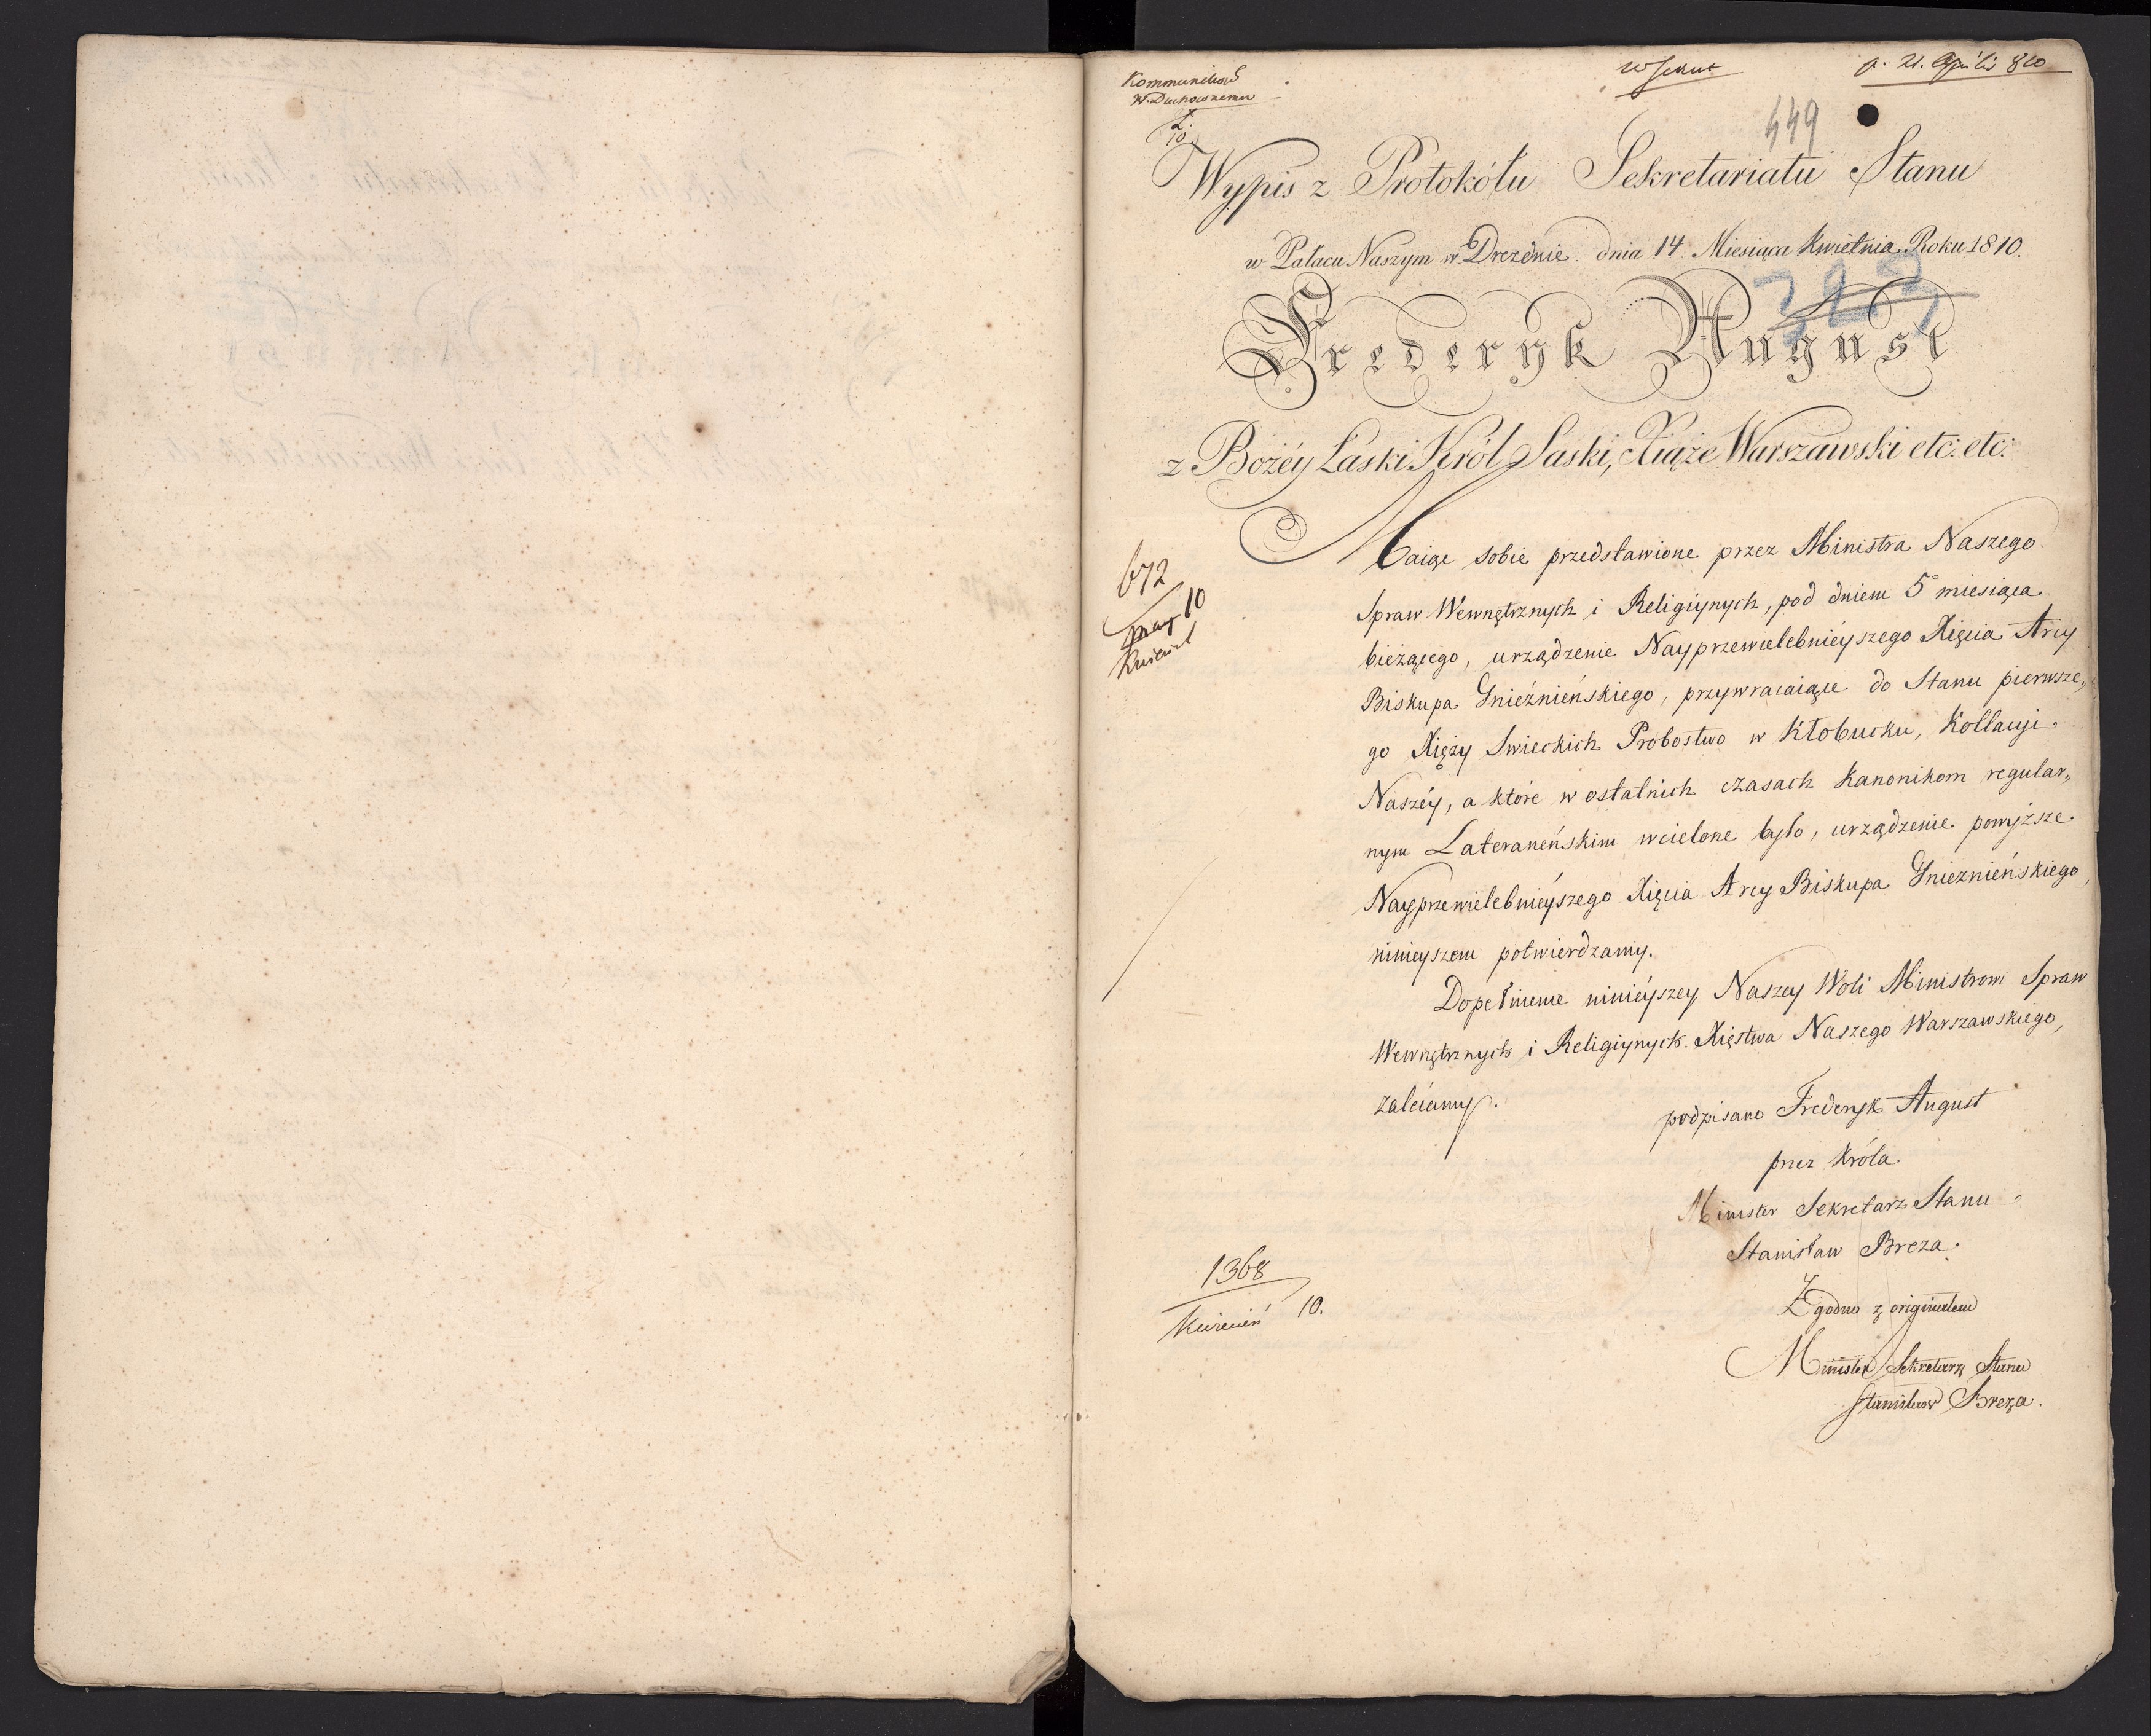 W. Duchownemu
p. 21. Aprilis 810
449
Wypis z Protokółu Sekretariatu Stanu
w Pałacu Naszym w Dreznie dnia 14. Miesiąca Kwietnia Roku 1810.
Frederyk August
z Bożéy Łaski Król Saski, Xiąże Warszawski etc: etc:
Maiąc sobie przedstawione przez Ministra Naszego
Spraw Wewnętrznych i Religiynych, pod dniem 5º miesiąca
bieżącego, urządzenie Nayprzewielebnieyszego Xięcia Arcy
Biskupa Gnieźnieńskiego, przywracaiące do Stanu pierwsze„
go Xięży Swieckich Probostwo w Kłobucku, Kollacyi
Naszéy, a które w ostatnich czasach Kanonikom regular„
nym Lateraneńskim wcielone było, urządzenie powyższe
Nayprzewielebnieyszego Xięcia Arcy Biskupa Gnieznieńskiego,
ninieyszem potwierdzamy.
Dopełnienie ninieyszey Naszey Woli Ministrowi Spraw
Wewnętrznych i Religiynych Xięstwa Naszego Warszawskiego,
zalecamy.
podpisano Frederyk August
przez Króla
Minister Sekretarz Stanu
Stanisław Breza.
Zgodno z originałem
Minister Sekretarz Stanu
Stanisław Breza.
672
10
1368
Kwiecień 10.